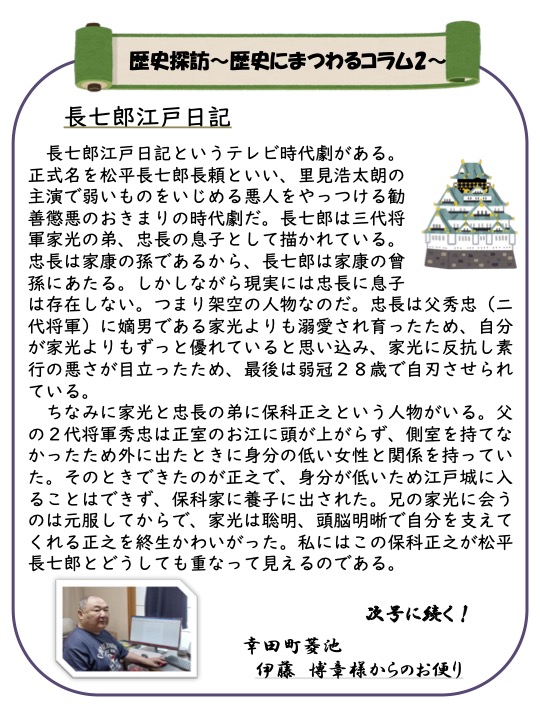 歴史探訪～歴史にまつわるコラム2～
長七郎江戸日記
長七郎江戸日記というテレビ時代劇がある。
正式名を松平長七郎長頼といい、里見浩太朗の
主演で弱いものをいじめる悪人をやっつける勧
善懲悪のおきまりの時代劇だ。長七郎は三代将
軍家光の弟、忠長の息子として描かれている。
忠長は家康の孫であるから、長七郎は家康の曾
孫にあたる。しかしながら現実には忠長に息子
は存在しない。つまり架空の人物なのだ。忠長は父秀忠（二
代将軍）に嫡男である家光よりも溺愛され育ったため、自分
が家光よりもずっと優れていると思い込み、家光に反抗し素
行の悪さが目立ったため、最後は弱冠２８歳で自刃させられ
ている。
ちなみに家光と忠長の弟に保科正之という人物がいる。父
の２代将軍秀忠は正室のお江に頭が上がらず、側室を持てな
かったため外に出たときに身分の低い女性と関係を持ってい
た。そのときできたのが正之で、身分が低いため江戸城に入
ることはできず、保科家に養子に出された。兄の家光に会う
のは元服してからで、家光は聡明、頭脳明晰で自分を支えて
くれる正之を終生かわいがった。私にはこの保科正之が松平
長七郎とどうしても重なって見えるのである。
次号に続く！
幸田町菱池
伊藤　博章様からのお便り